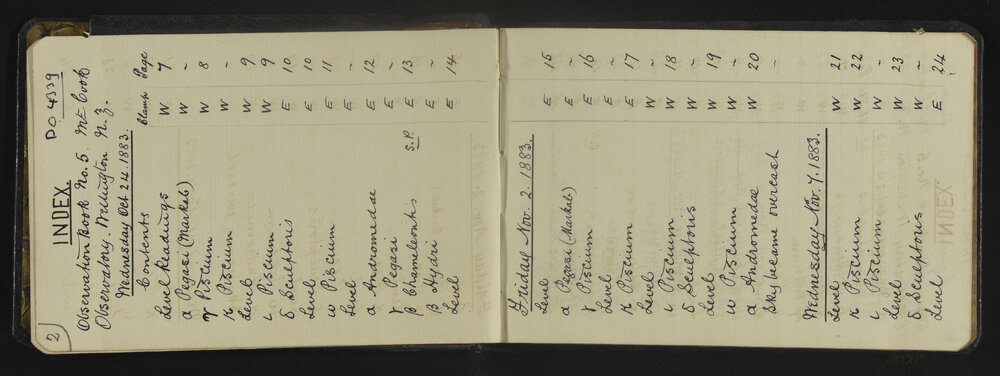 2
INDEX. DO 4339
Observation Book No. 5. Mt Cook
Observatory Wellington N.Z.
Wednesday Oct 24. 1883.
Contents Clamp Page
Level Readings W 7
α Pegasi (Markab) W ~
γ Piscium W 8
κ Piscium W ~
Level W 9
ι Piscium W 9
δ Sculptoris E 10
Level E 10
ω Piscium E 11
Level E ~
α Andromedae E 12
γ Pegasi E ~
β Chameleontis S.P. E 13
β Hydri E ~
Level E 14
Friday Nov. 2. 1883.
Level E 15
α Pegasi (Markab) E ~
γ Piscium E 16
Level E ~
κ Piscium E 17
Level W ~
ι Piscium W 18
δ Sculptoris W ~
Level W 19
ω Piscium W ~
α Andromedae W 20
Sky became overcast
Wednesday Nov. 7. 1883.
Level W 21
κ Piscium W 22
ι Piscium W ~
Level W 23
δ Sculptoris W ~
Level E 24